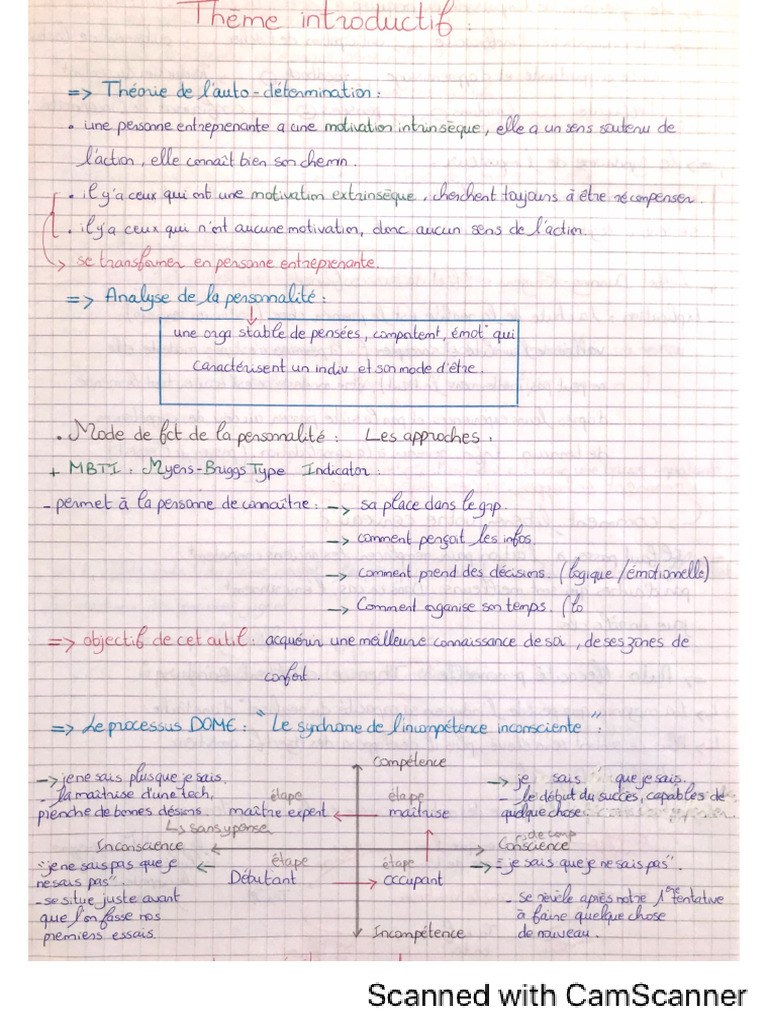 Thème introductif :
=> Théorie de l'auto-détermination :
• une personne entreprenante a une motivation intrinsèque, elle a un sens soutenu de
l'action, elle connaît bien son chemin.
• il y'a ceux qui ont une motivation extrinsèque, cherchent toujours à être récompenser.
• il y'a ceux qui n'ont aucune motivation, donc aucun sens de l'action.
↳ se transformer en personne entreprenante.
=> Analyse de la personalité :
une orga stable de pensées, comportemt, émot° qui
caractérisent un indiv et son mode d'être.
• Mode de fct de la personalité : Les approches.
+ MBTI : Myers-Briggs Type Indicator.
- permet à la personne de connaître : → sa place dans le grp.
→ comment perçoit les infos.
→ comment prend des décisions. (logique / émotionelle)
→ Comment organise son temps. (to
=> objectif de cet outil : acquérir une meilleure connaissance de soi, de ses zones de
confort.
=> Le processus DOME : "Le syndrome de l'incompétence inconsciente" :
Compétence
→ je ne sais plus que je sais.
- la maîtrise d'une tech,
prenche de bonnes désirns.
↳ sans y penser
étape
maître expert
étape
maîtrise
→ je sais que je sais.
- le début du succès, capables de
quelque chose
Inconscience
de comp
Conscience
"je ne sais pas que je
ne sais pas".
- se situe juste avant
que l'on fasse nos
premiers essais.
étape
Débutant
étape
occupant
→ "je sais que je ne sais pas".
- se révèle après notre 1ère tentative
à faire quelque chose
de nouveau.
Incompétence
Scanned with CamScanner